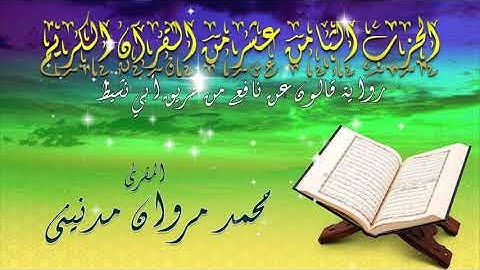 الحزب الثامن عشر من القرآن الكريم
رواية قالون عن نافع من طريق أبي نشيط
المقرئ
محمد مروان مدنيني